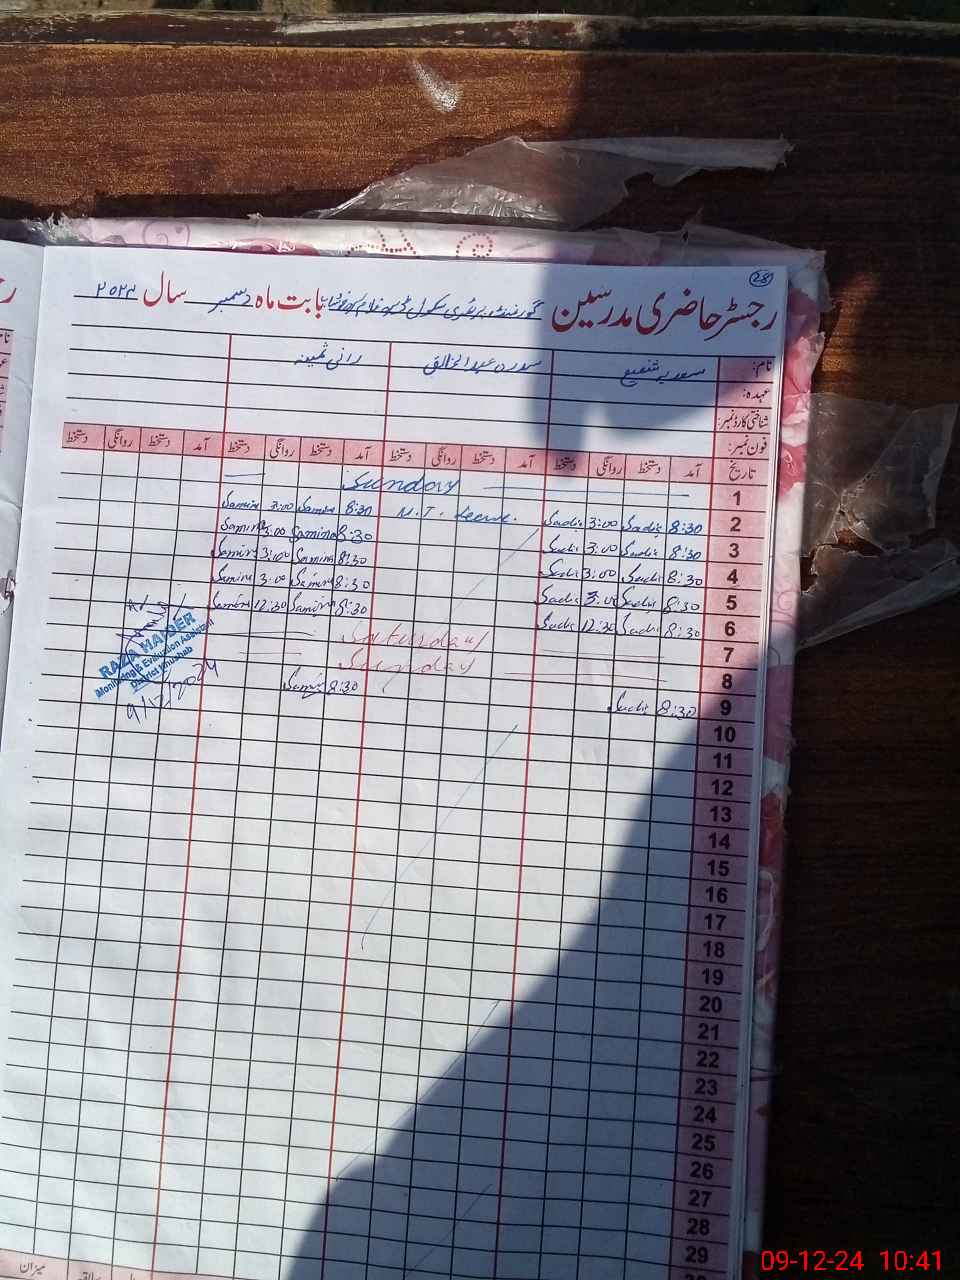 28
رجسٹر حاضری مدرسین گورنمنٹ پرائمری سکول بابت ماہ دسمبر سال ۲۰۲۴
نام: سعدیہ شفیع سدرہ عبدالخالق رانی ثمینہ
عہدہ:
شناختی کارڈ نمبر:
فون نمبر:
تاریخ آمد دستخط روانگی دستخط آمد دستخط روانگی دستخط آمد دستخط روانگی دستخط آمد دستخط روانگی دستخط
Sunday 1
Samina 3:00 Samina 8:30 M.T. Leave. Sadia 3:00 Sadia 8:30 2
Samina 3:00 Samina 8:30 Sadia 3:00 Sadia 8:30 3
Samina 3:00 Samina 8:30 Sadia 3:00 Sadia 8:30 4
Samina 3:00 Samina 8:30 Sadia 3:00 Sadia 8:30 5
Samina 12:30 Samina 8:30 Sadia 12:30 Sadia 8:30 6
Saturday 7
Sunday 8
Samina 8:30 Sadia 8:30 9
RAZA HAIDER
Monitoring & Evaluation Assistant
District Khushab
9/12/2024
10
11
12
13
14
15
16
17
18
19
20
21
22
23
24
25
26
27
28
29
میزان
09-12-24 10:41